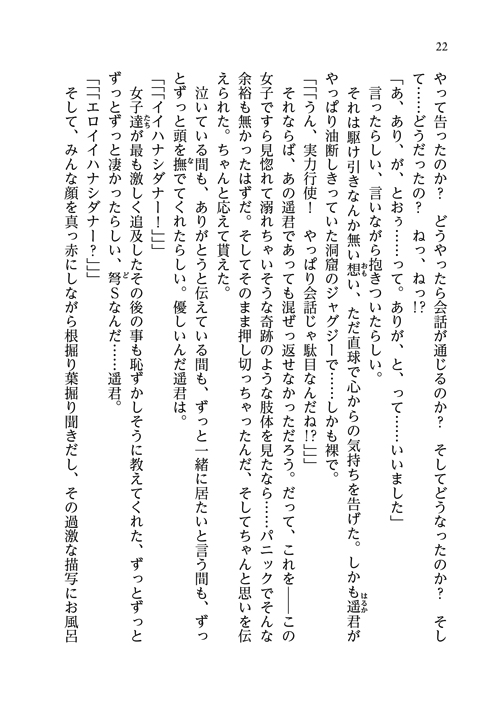 22
やって告ったのか？　どうやったら会話が通じるのか？　そしてどうなったのか？　そし
て……どうだったの？　ねっ、ねっ!?
「あ、あり、が、とおぅ……って。ありが、と、って……いいました」
言ったらしい、言いながら抱きついたらしい。
それは駆け引きなんか無い想い、ただ直球で心からの気持ちを告げた。しかも遥君が
やっぱり油断しきっていた洞窟のジャグジーで……しかも裸で。
「「「うん、実力行使！　やっぱり会話じゃ駄目なんだね!?」」」
それならば、あの遥君であっても混ぜっ返せなかっただろう。だって、これを――この
女子ですら見惚れて溺れちゃいそうな奇跡のような肢体を見たなら……パニックでそんな
余裕も無かったはずだ。そしてそのまま押し切っちゃったんだ、そしてちゃんと思いを伝
えられた。ちゃんと応えて貰えた。
泣いている間も、ありがとうと伝えている間も、ずっと一緒に居たいと言う間も、ずっ
とずっと頭を撫でてくれたらしい。優しいんだ遥君は。
「「「イイハナシダナー！」」」
女子達が最も激しく追及したその後の事も恥ずかしそうに教えてくれた、ずっとずっと
ずっとずっと凄かったらしい、弩Ｓなんだ……遥君。
「「「エロイイハナシダナー？」」」
そして、みんな顔を真っ赤にしながら根掘り葉掘り聞きだし、その過激な描写にお風呂